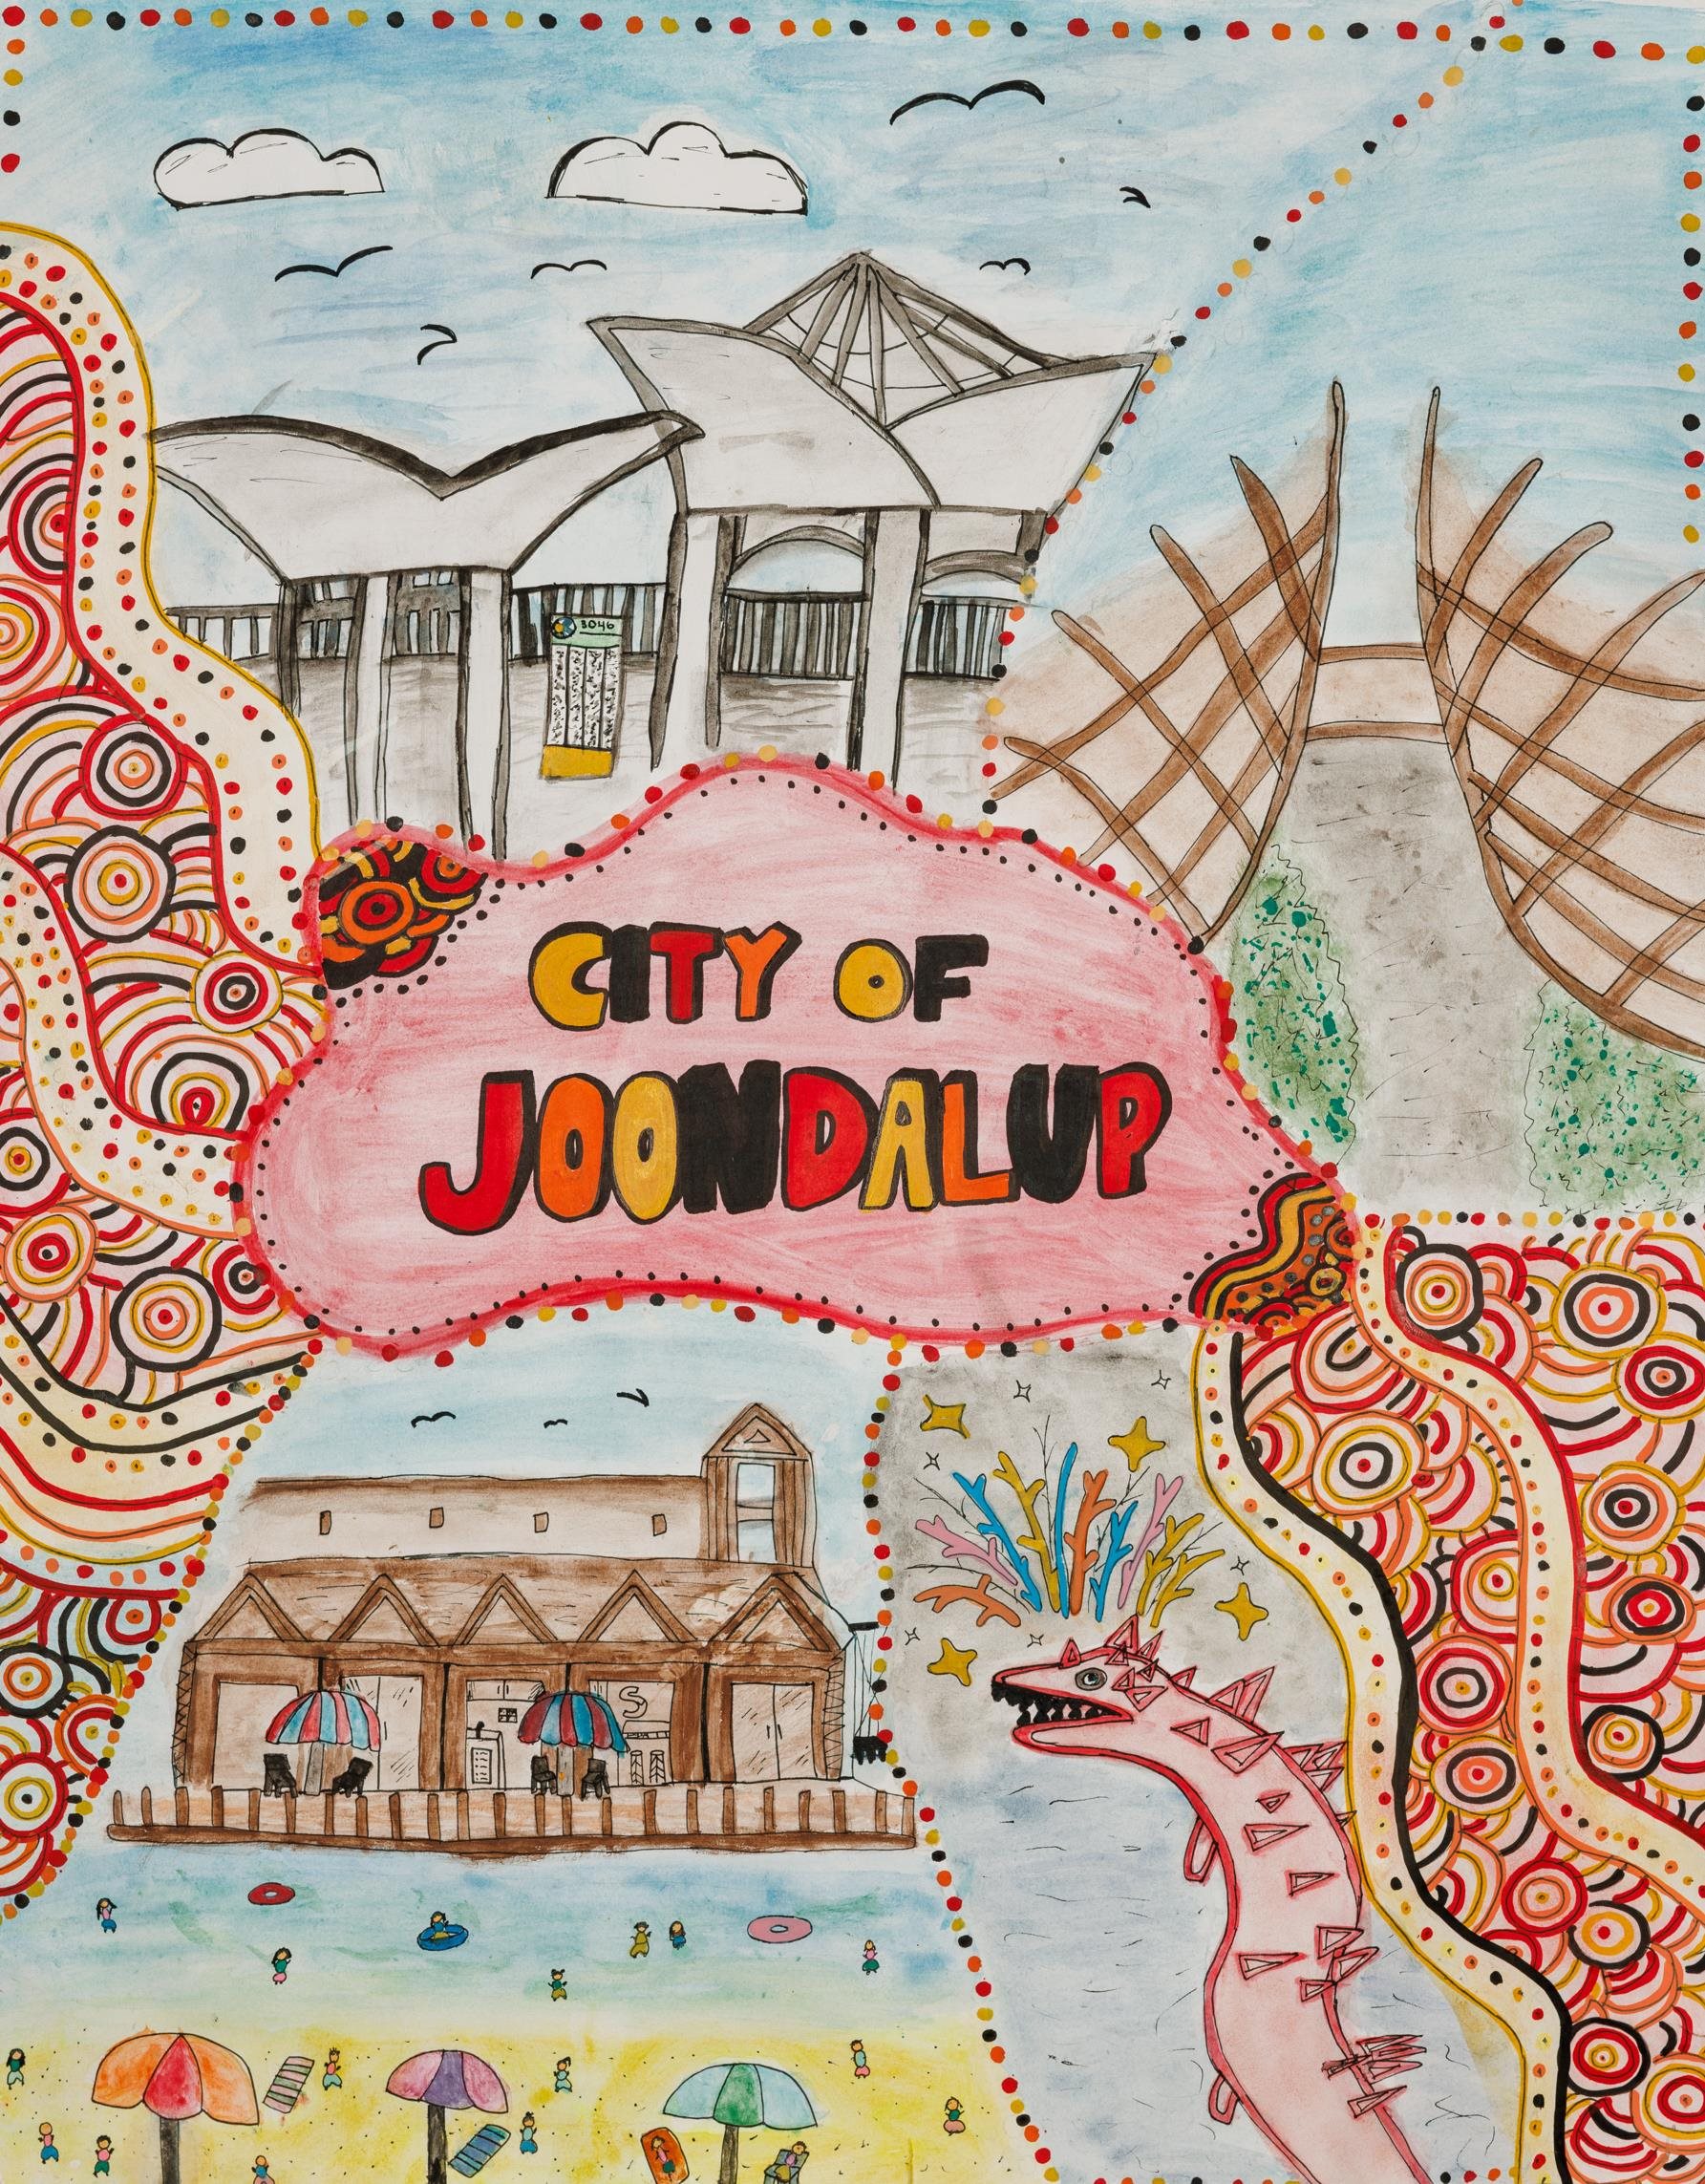 3046
CITY OF
JOONDALUP
S